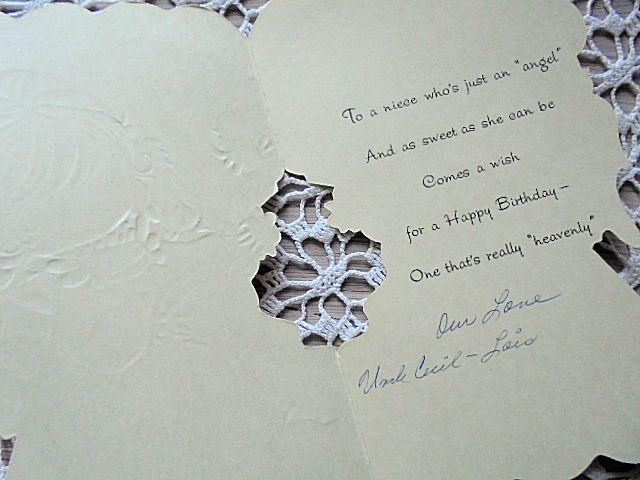 To a niece who's just an "angel"
And as sweet as she can be
Comes a wish
for a Happy Birthday—
One that's really "heavenly"
Our Love
Uncle Cecil - Lois